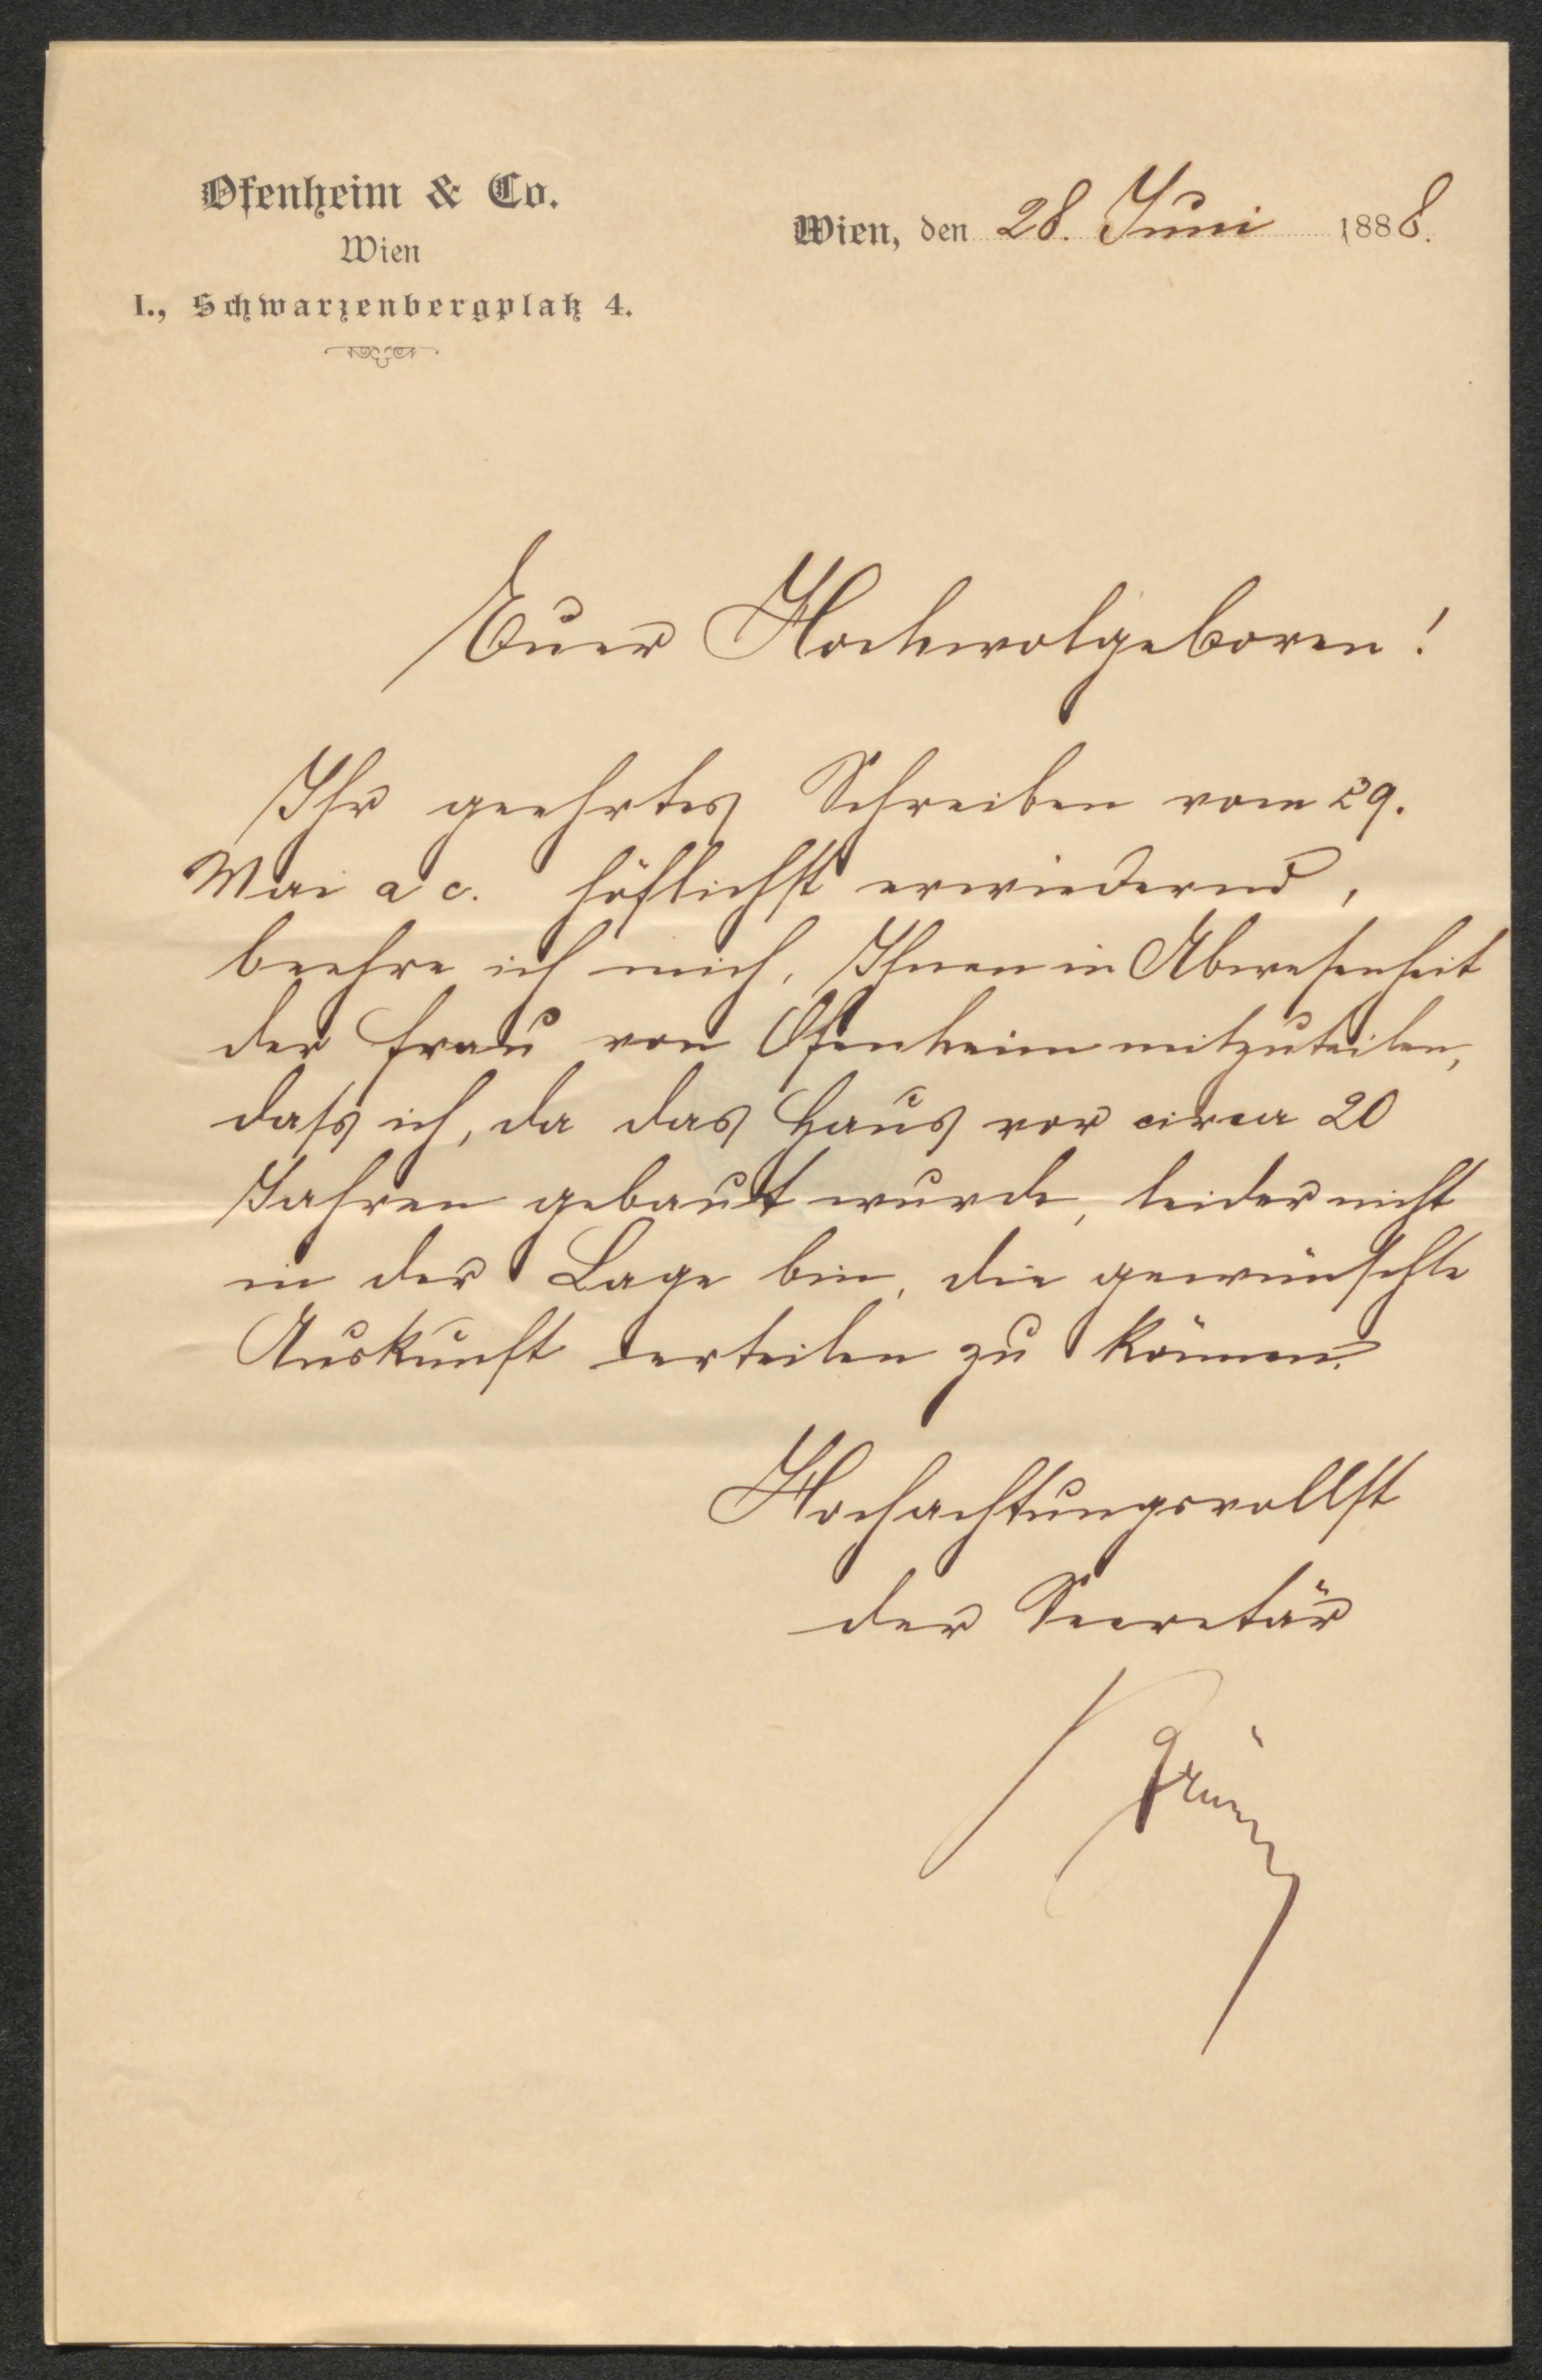 Ofenheim & Co.
Wien
I., Schwarzenbergplatz 4.
Wien, den 28. Juni 1888.
Euer Hochwolgeboren!
Ihr geehrtes Schreiben vom 29.
Mai a c. höflichst erwiedernd,
beehre ich mich, Ihnen in Abwesenheit
der Frau von Ofenheim mitzuteilen,
dass ich, da das Haus vor circa 20
Jahren gebaut wurde, leider nicht
in der Lage bin, die gewünschte
Auskunft erteilen zu können.
Hochachtungsvollst
der Secretär